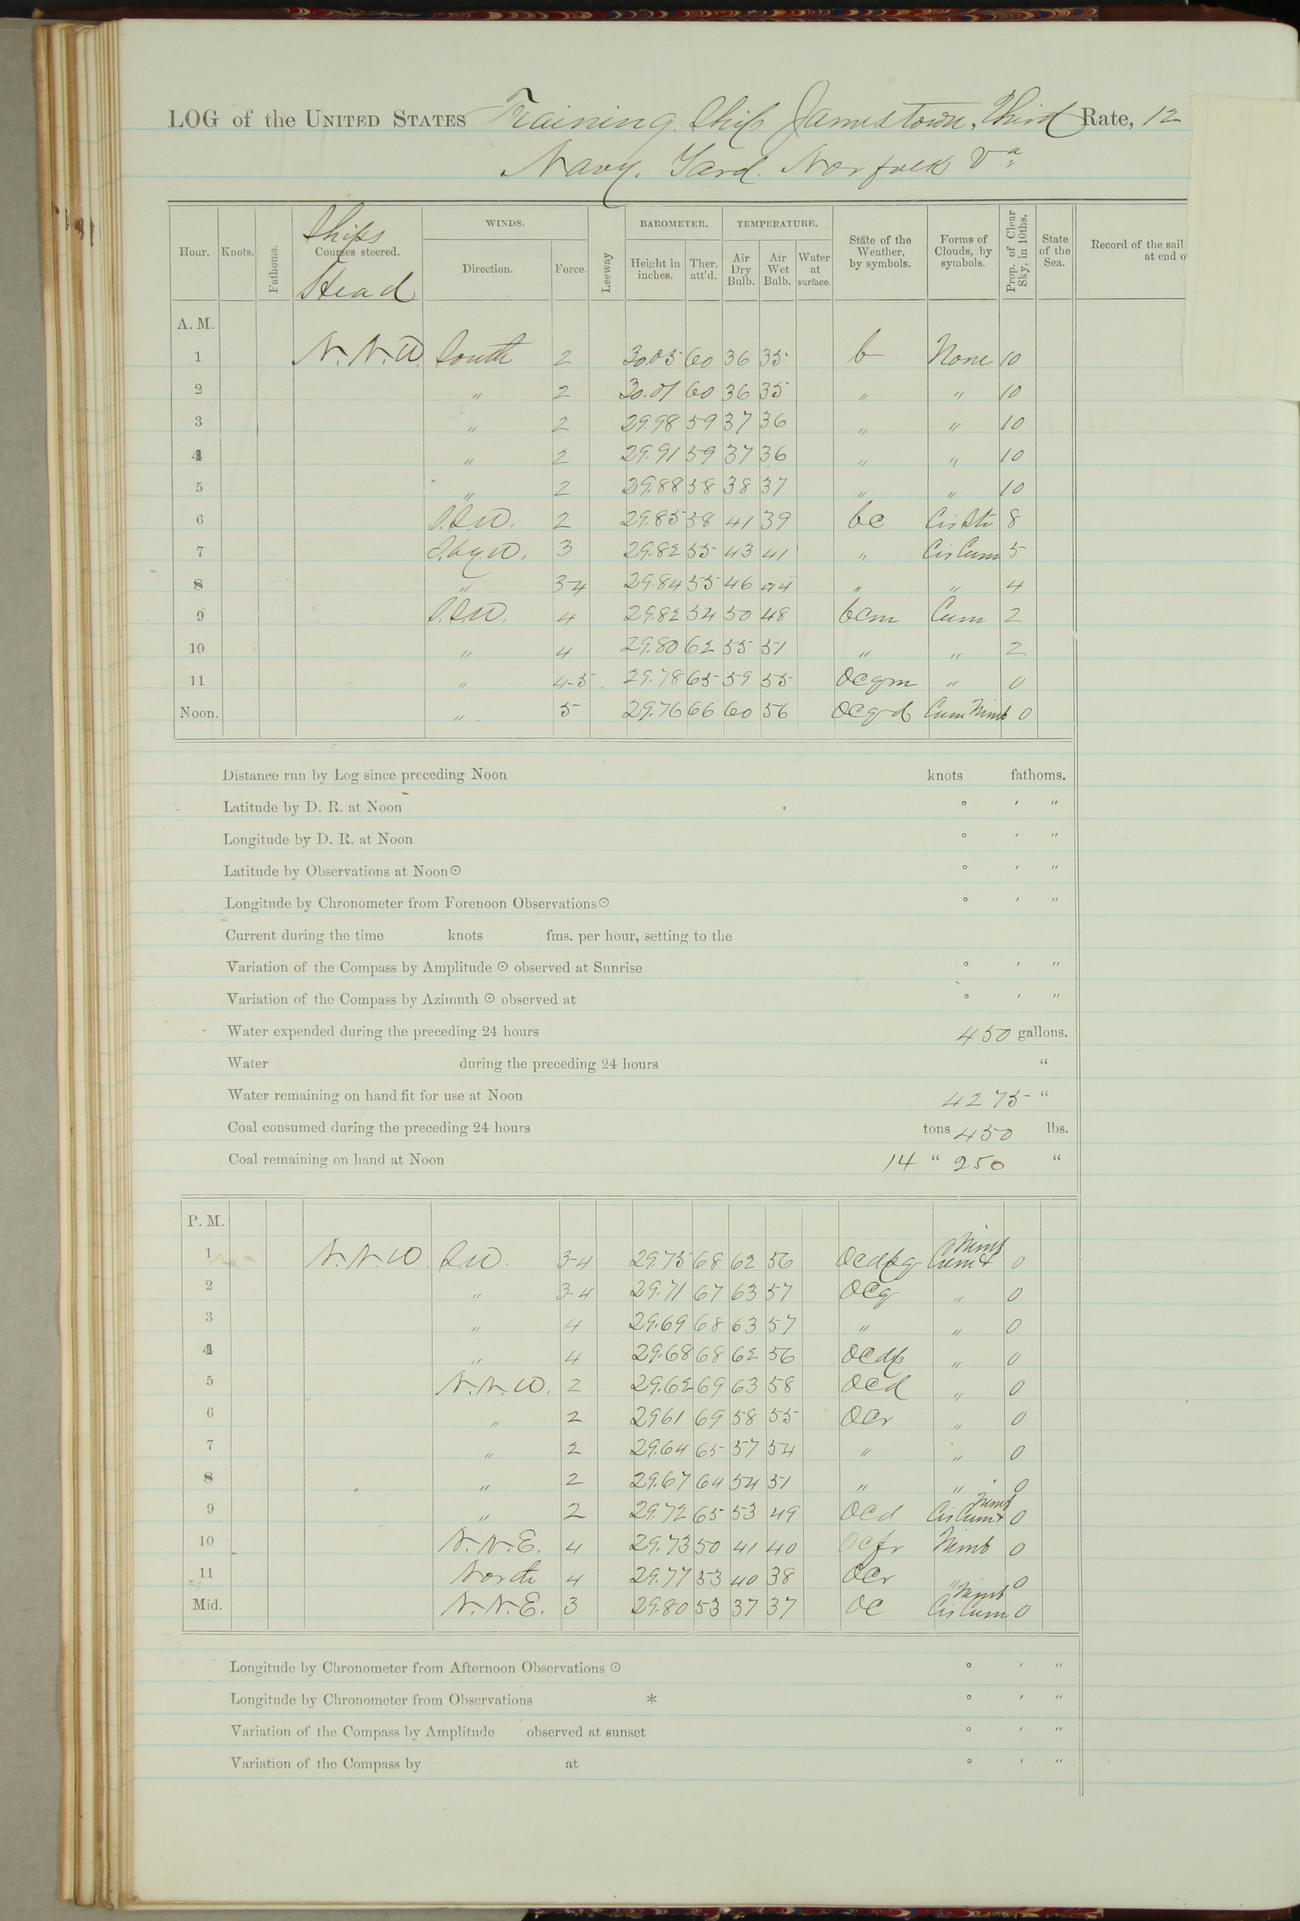 LOG of the UNITED STATES Training Ship Jamestown, Third Rate, 12
Navy Yard Norfolk Va
Hour. Knots. Fathoms. Ships Courses steered. Head WINDS. Direction. Force. Leeway BAROMETER. Height in inches. Ther. att'd. TEMPERATURE. Air Dry Bulb. Air Wet Bulb. Water at surface. State of the Weather, by symbols. Forms of Clouds, by symbols. Prop. of Clear Sky, in 10ths. State of the Sea. Record of the sail at end o
A. M.
1 N.N.W. South 2 30.05 60 36 35 b None 10
2 " 2 30.01 60 36 35 " " 10
3 " 2 29.98 59 37 36 " " 10
4 " 2 29.91 59 37 36 " " 10
5 " 2 29.88 58 38 37 " " 10
6 S.S.W. 2 29.85 58 41 39 bc Cir Str 8
7 S.by.W. 3 29.82 55 43 41 " Cir Cum 5
8 " 3-4 29.84 55 46 44 " " 4
9 S.S.W. 4 29.82 54 50 48 bcm Cum 2
10 " 4 29.80 62 55 51 " " 2
11 " 4-5 29.78 65 59 55 ocqm " 0
Noon. " 5 29.76 66 60 56 ocqd Cum Nimb 0
Distance run by Log since preceding Noon knots fathoms.
Latitude by D. R. at Noon ° ′ ″
Longitude by D. R. at Noon ° ′ ″
Latitude by Observations at Noon ☉ ° ′ ″
Longitude by Chronometer from Forenoon Observations ☉ ° ′ ″
Current during the time knots fms. per hour, setting to the
Variation of the Compass by Amplitude ☉ observed at Sunrise ° ′ ″
Variation of the Compass by Azimuth ☉ observed at ° ′ ″
Water expended during the preceding 24 hours 450 gallons.
Water during the preceding 24 hours "
Water remaining on hand fit for use at Noon 4275 "
Coal consumed during the preceding 24 hours tons 450 lbs.
Coal remaining on hand at Noon 14 " 250 "
P. M.
1 N.N.W. S.W. 3-4 29.75 68 62 56 ocdpq Cum & Nimb 0
2 " 3-4 29.71 67 63 57 ocq " 0
3 " 4 29.69 68 63 57 " " 0
4 " 4 29.68 68 62 56 ocdp " 0
5 N.N.W. 2 29.62 69 63 58 ocd " 0
6 " 2 2961 69 58 55 ocr " 0
7 " 2 29.64 65 57 54 " " 0
8 " 2 29.67 64 54 51 " " 0
9 " 2 29.72 65 53 49 ocd Cir Cum & Nimb 0
10 N.N.E. 4 29.73 50 41 40 ocfr Nimb 0
11 North 4 29.77 53 40 38 ocr " 0
Mid. N.N.E. 3 29.80 53 37 37 oc Cir Cum Nimb 0
Longitude by Chronometer from Afternoon Observations ☉ ° ′ ″
Longitude by Chronometer from Observations * ° ′ ″
Variation of the Compass by Amplitude observed at sunset ° ′ ″
Variation of the Compass by at ° ′ ″